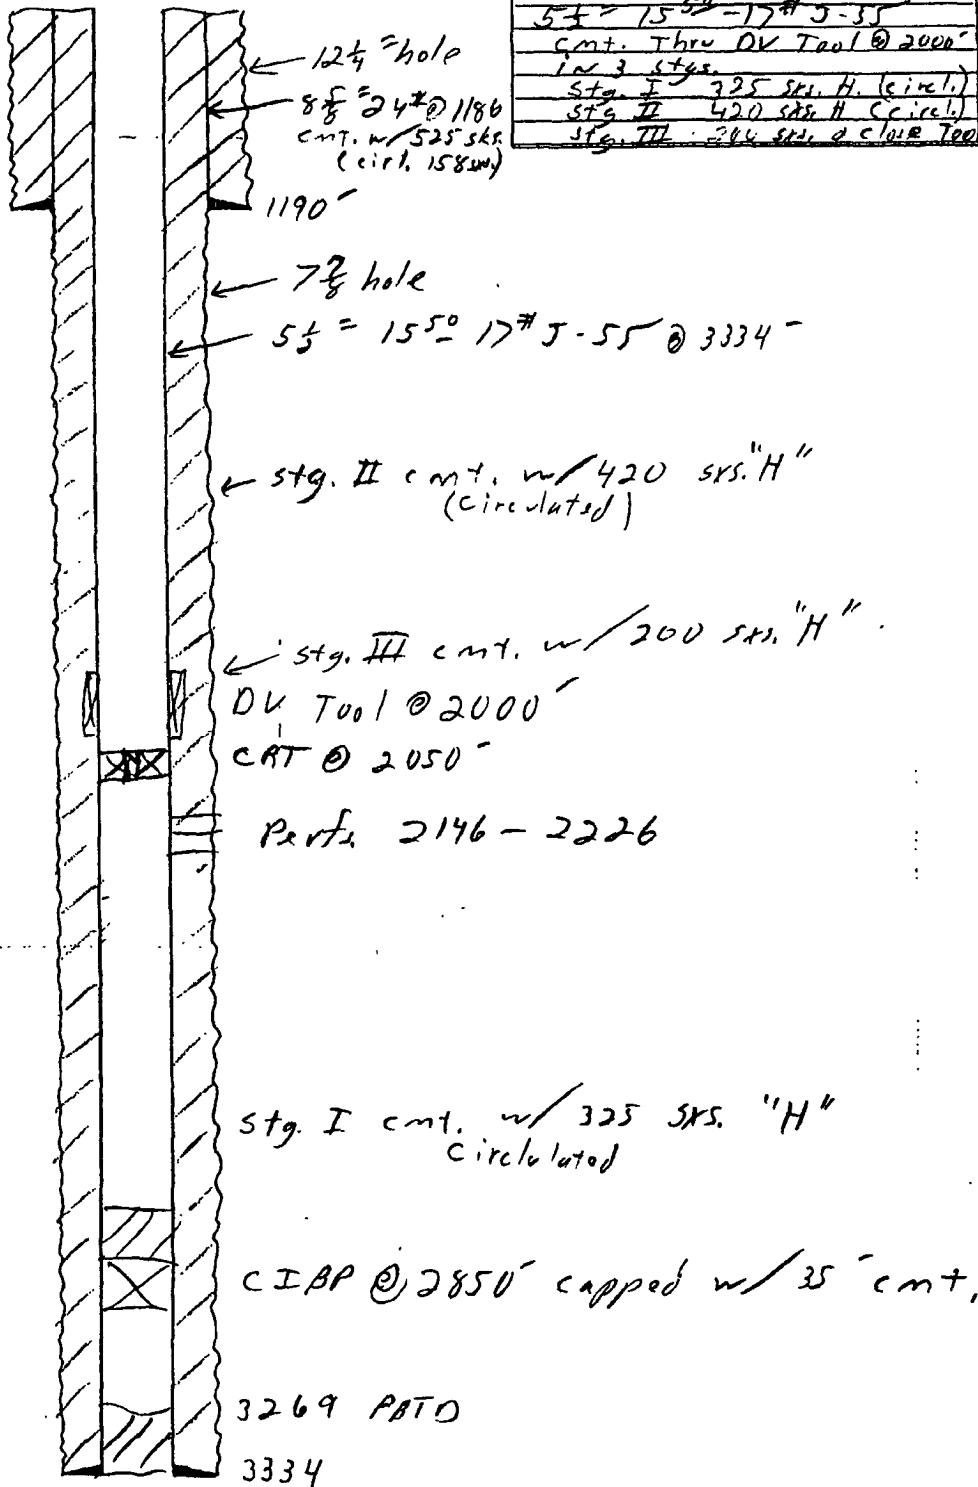 5½" 15⁵⁰ - 17# J-55
cmt. Thru DV Tool @ 2000'
in 3 stgs.
stg. I 325 sxs. H. (circl.)
stg II 420 sxs. H (circl.)
stg. III sxs. & close Too
12¼" hole
8⅝" 24# @ 1186
cmt. w/ 525 sks.
(circ. 158 sxs.)
1190'
7⅞ hole
5½" 15⁵⁰ 17# J-55 @ 3334'
stg. II cmt. w/ 420 sxs. "H"
(Circulated)
stg. III cmt. w/ 200 sxs. "H"
DV Tool @ 2000'
CRT @ 2050'
Perfs. 2146 - 2226
stg. I cmt. w/ 325 sxs. "H"
Circlulated
CIBP @ 2850' capped w/ 35' cmt.
3269 PBTD
3334